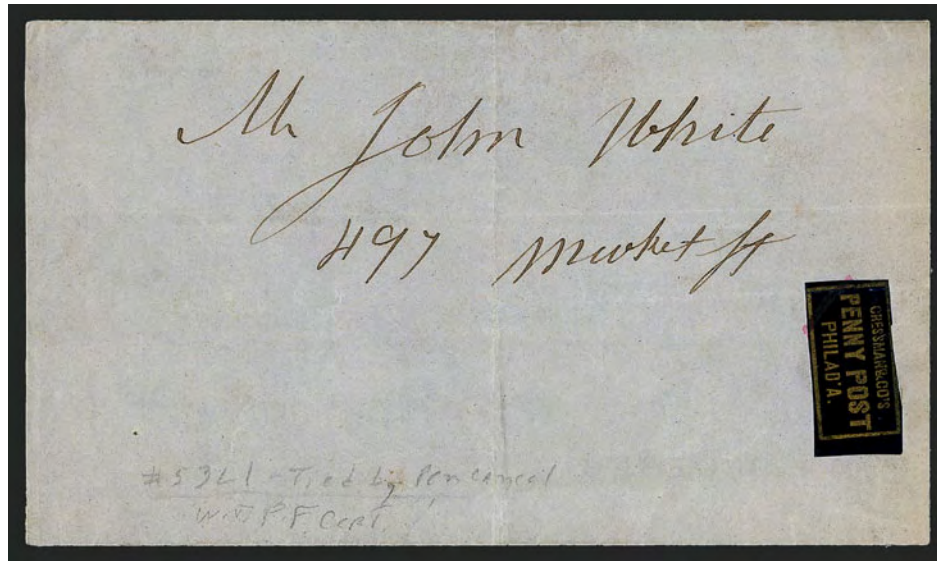 Mr John White
497 Market St
CRESSMAN & CO'S
PENNY POST
PHILAD'A.
#53L1 - Tied by Pen cancel
W.T. P.F. Cert.